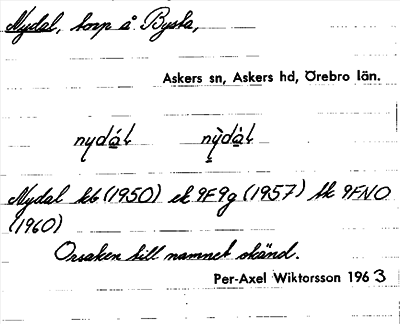 Nydal, torp å Bysta,
Askers sn, Askers hd, Örebro län.
nydál nỳdàl
Nydal kb (1950) ek 9F9g (1957) tk 9FNO
(1960)
Orsaken till namnet okänd.
Per-Axel Wiktorsson 1963